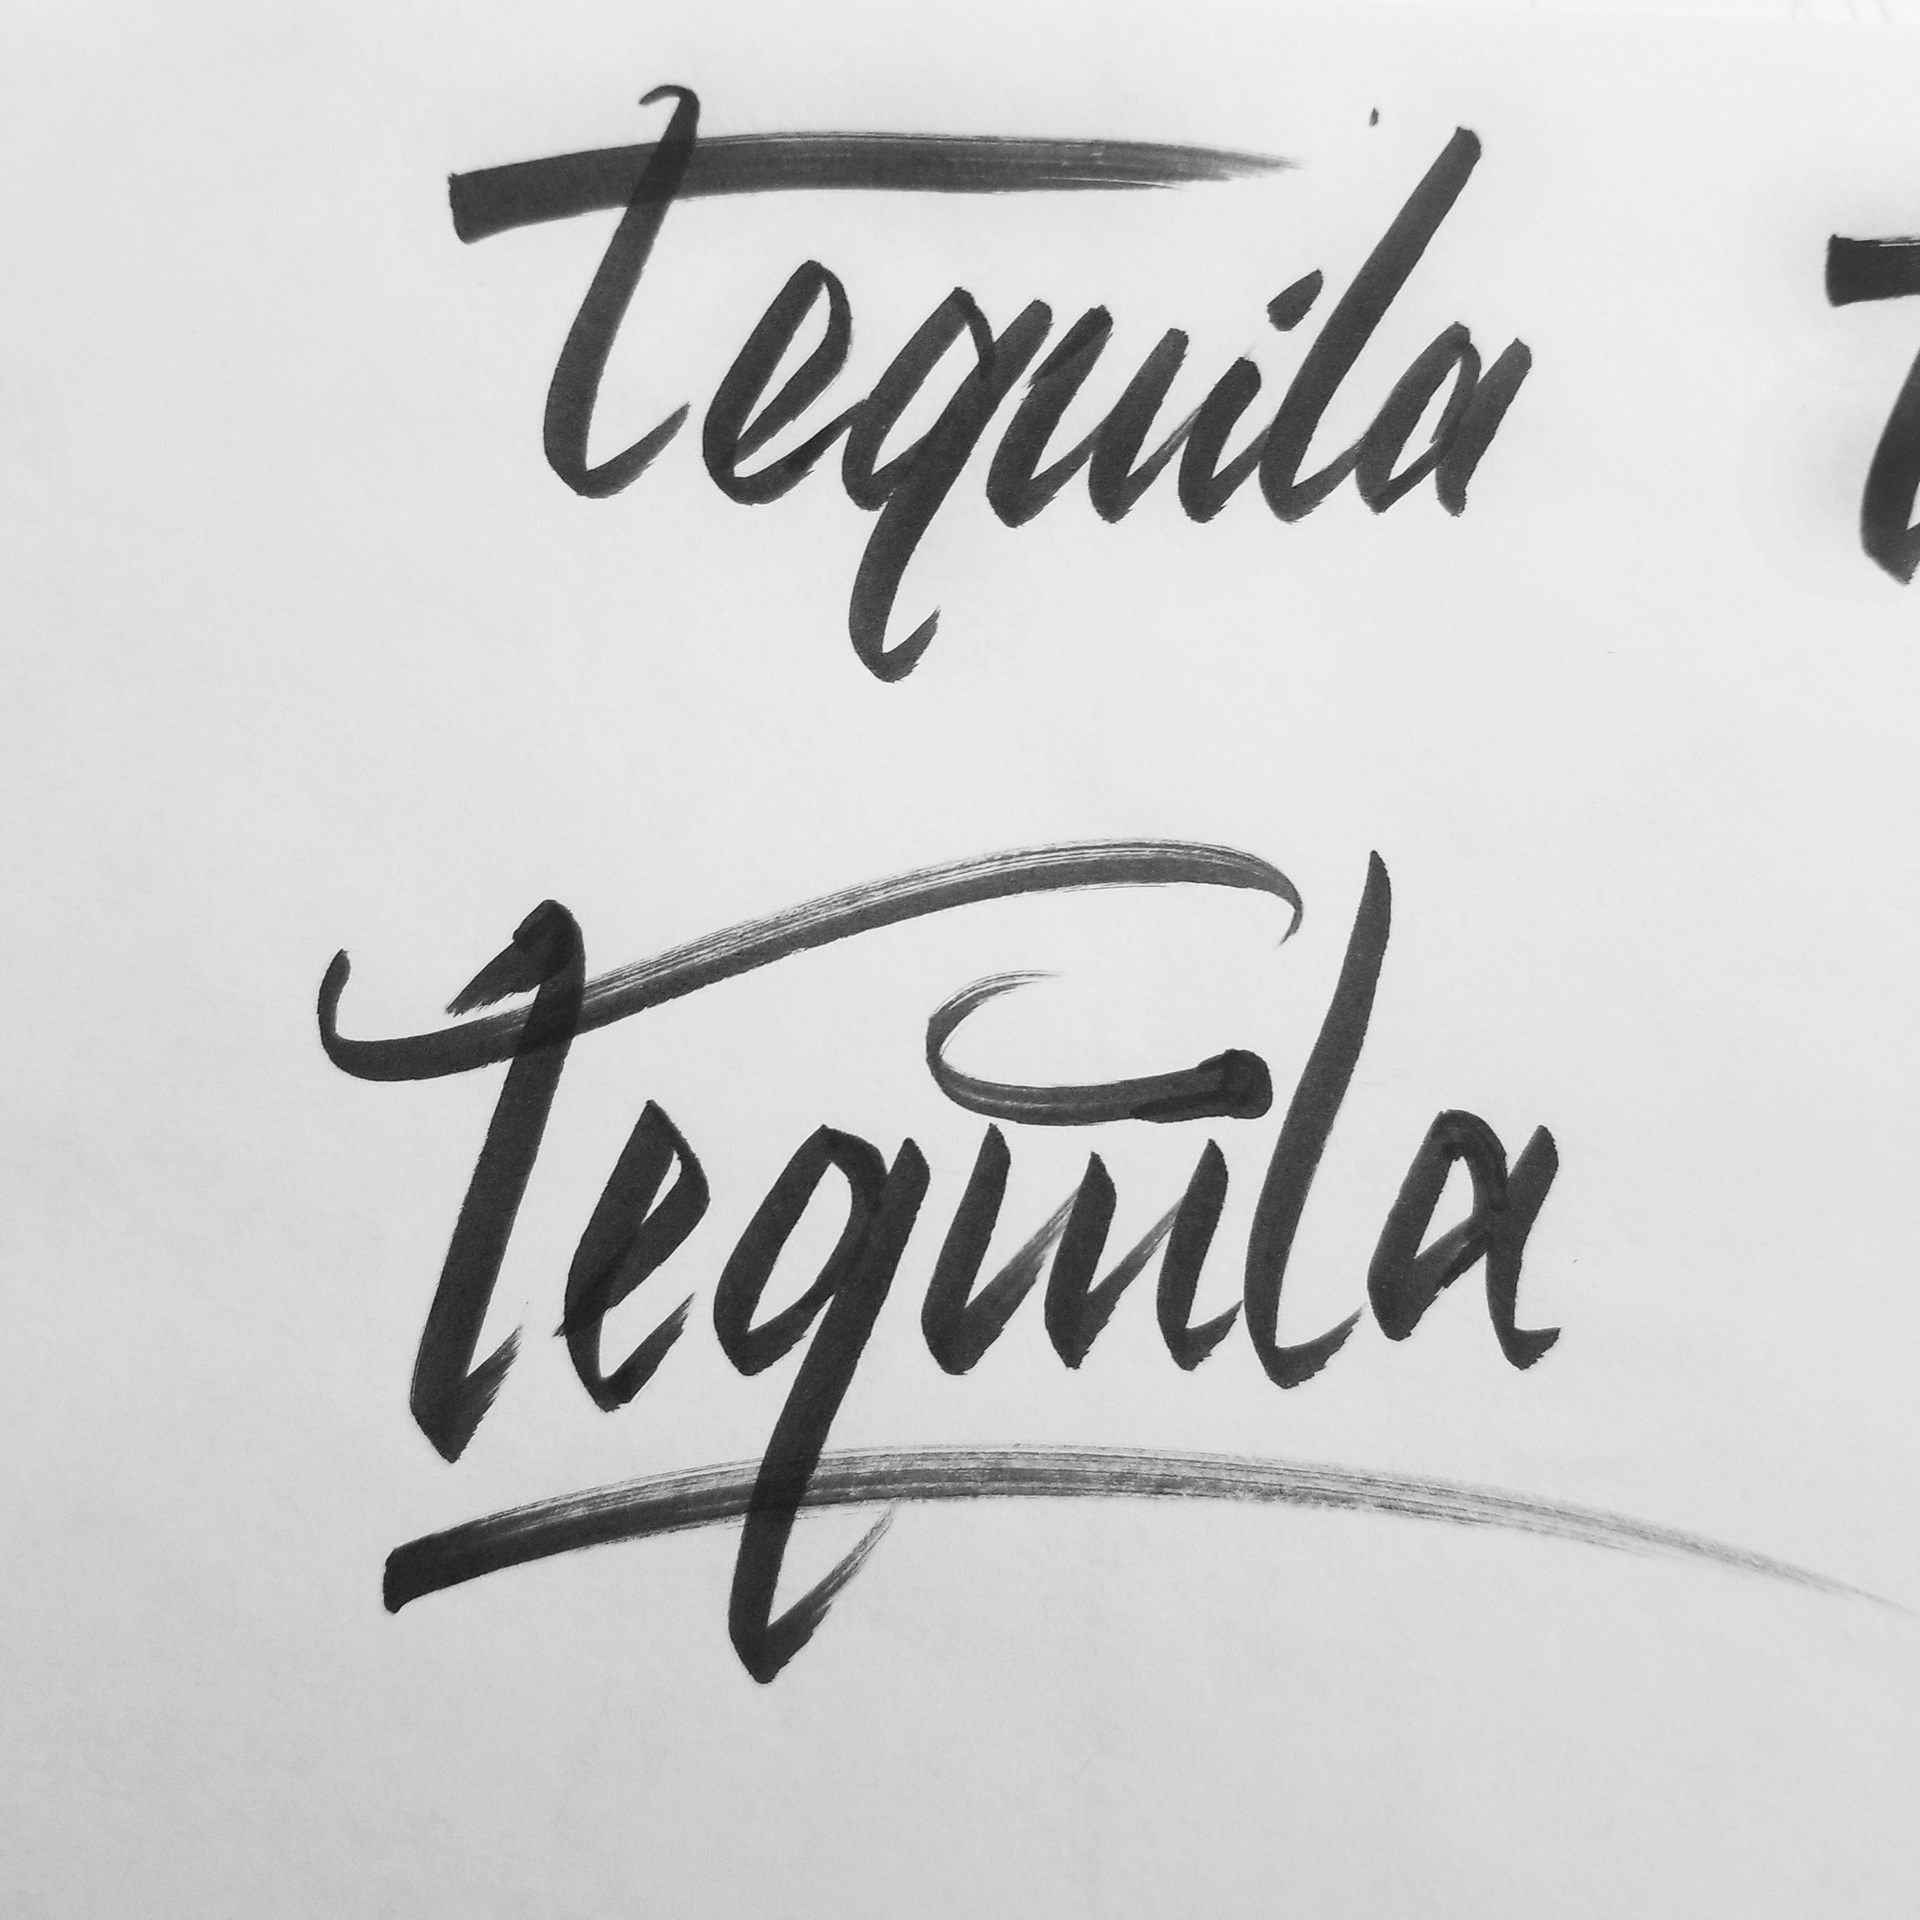 Tequila
Tequila